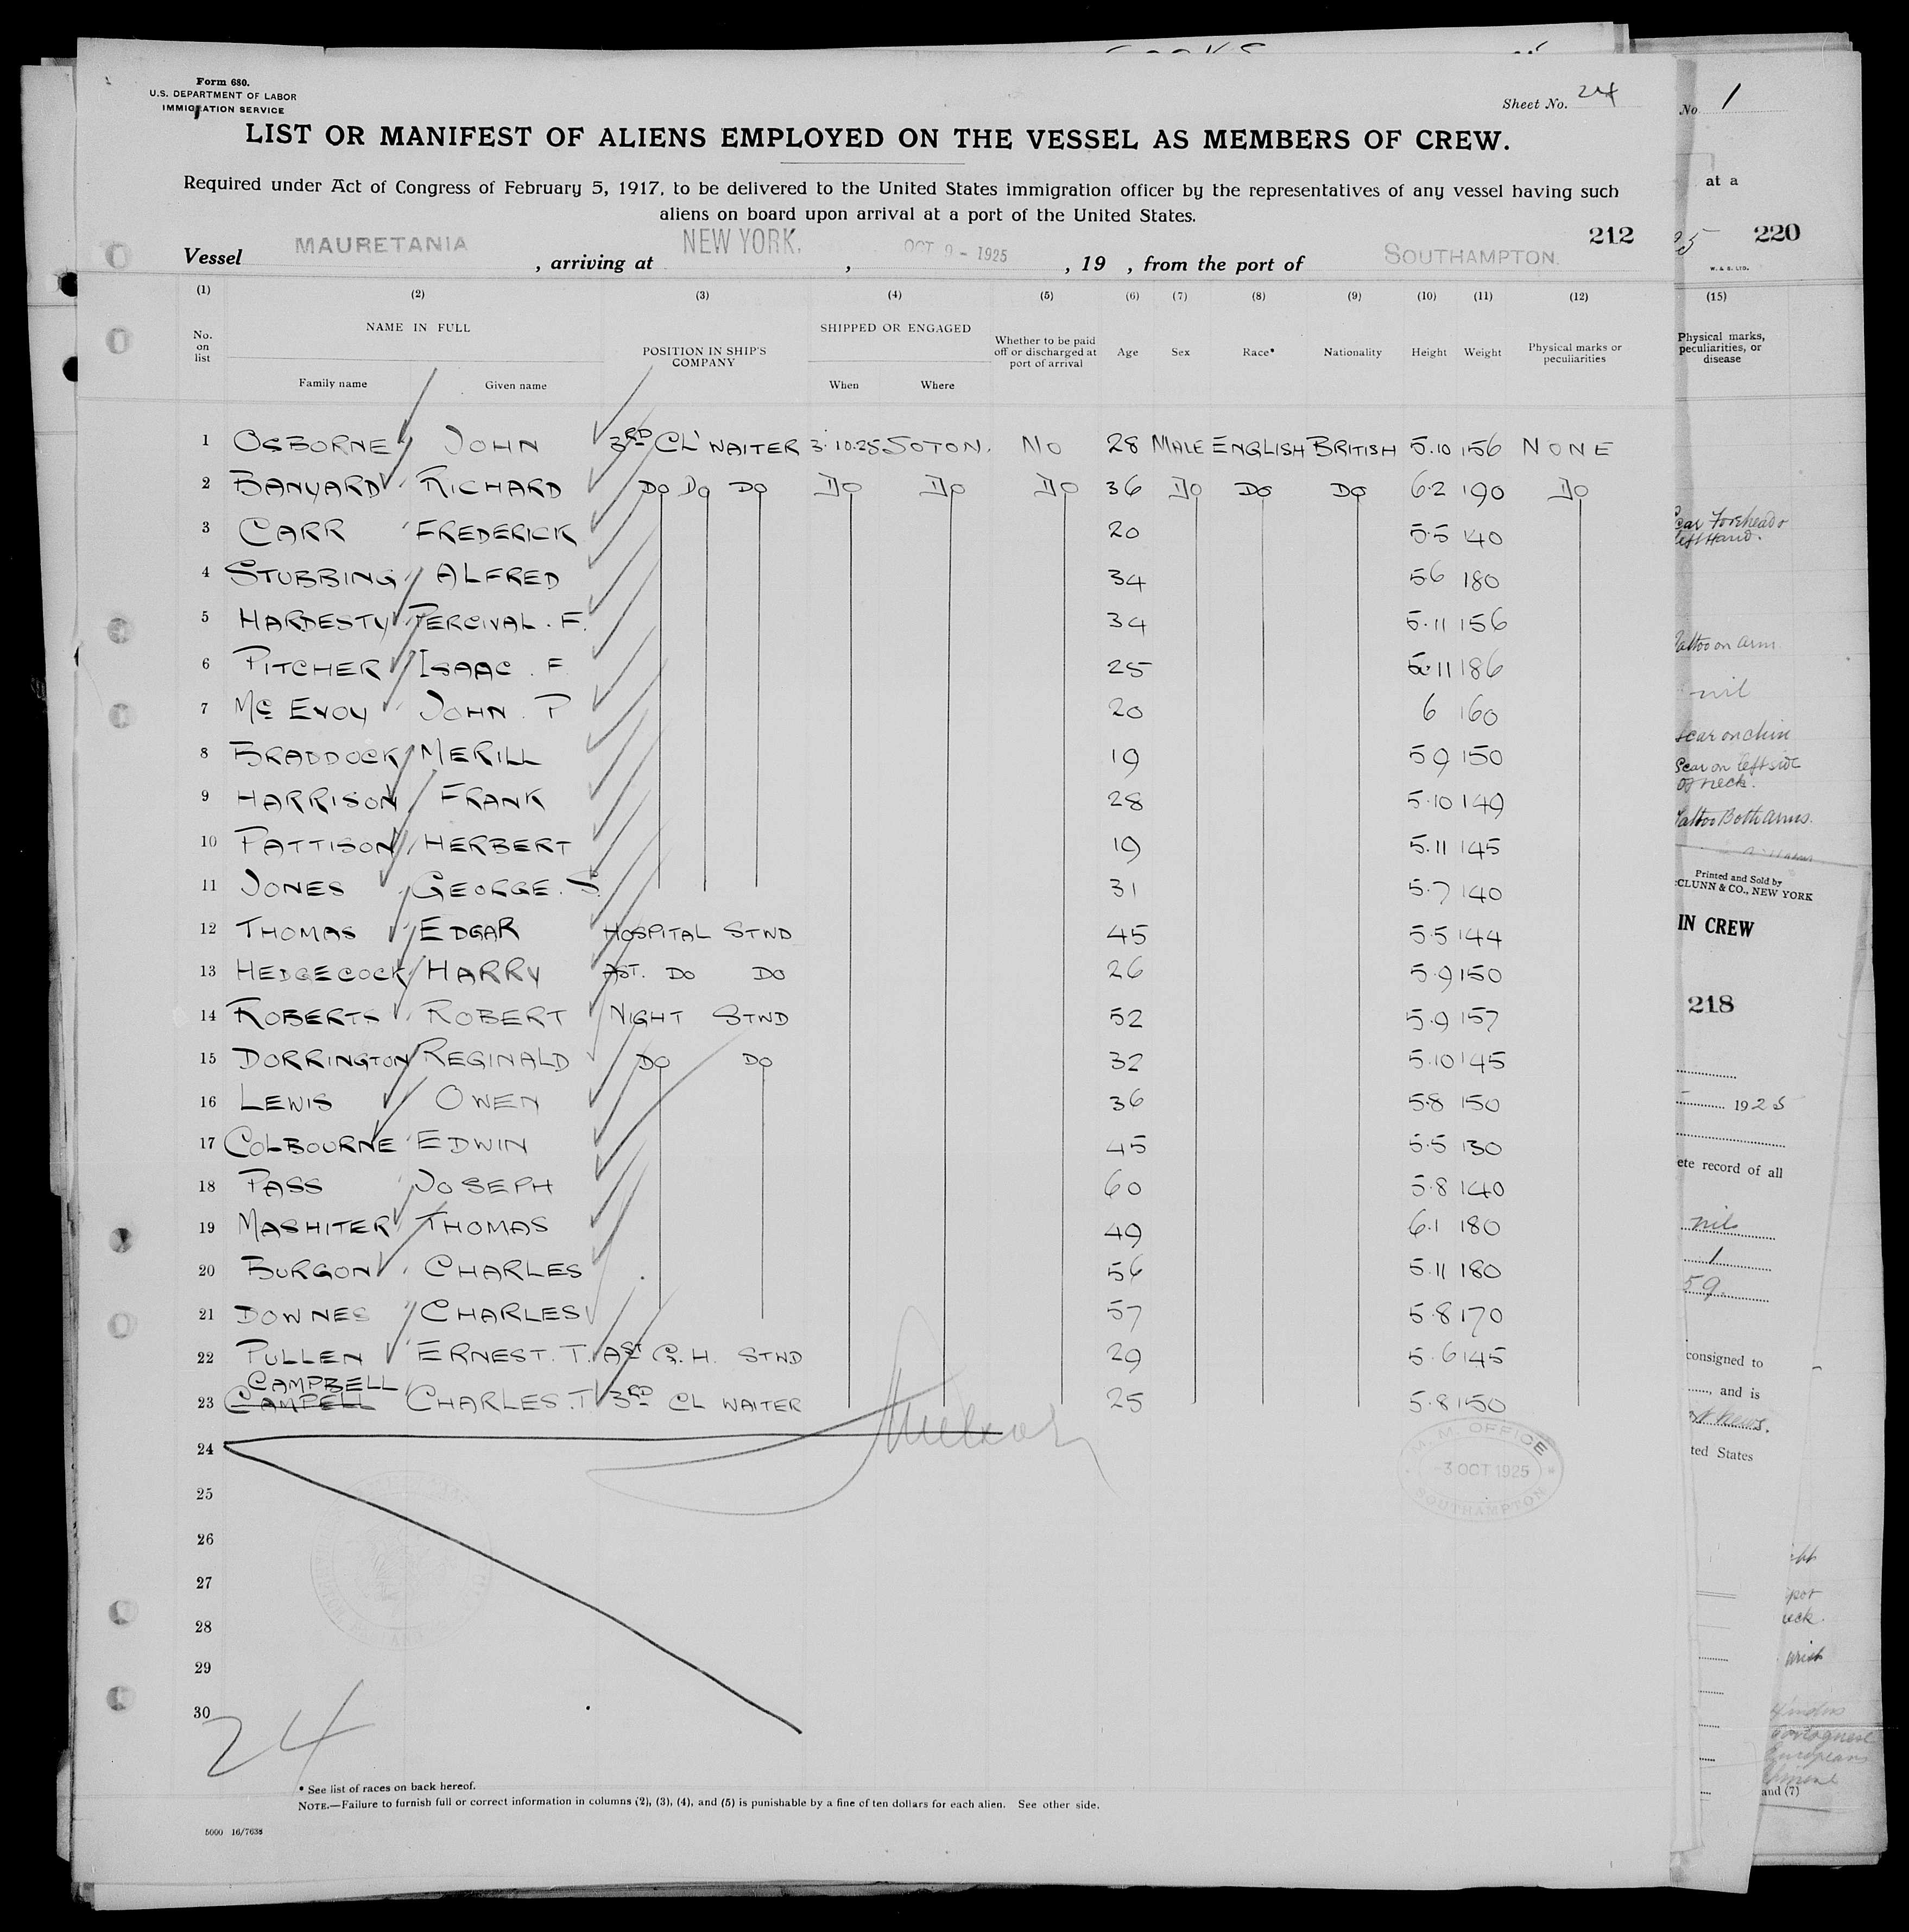 Form 680.
U.S. DEPARTMENT OF LABOR
IMMIGRATION SERVICE
Sheet No. 24
No 1
LIST OR MANIFEST OF ALIENS EMPLOYED ON THE VESSEL AS MEMBERS OF CREW.
Required under Act of Congress of February 5, 1917, to be delivered to the United States immigration officer by the representatives of any vessel having such
aliens on board upon arrival at a port of the United States.
at a
212
220
Vessel MAURETANIA, arriving at NEW YORK, OCT 9 - 1925, 19 , from the port of SOUTHAMPTON.
W. & S. LTD.
(1) (2) (3) (4) (5) (6) (7) (8) (9) (10) (11) (12) (15)
No. on list NAME IN FULL Family name Given name POSITION IN SHIP'S COMPANY SHIPPED OR ENGAGED When Where Whether to be paid off or discharged at port of arrival Age Sex Race* Nationality Height Weight Physical marks or peculiarities
Physical marks, peculiarities, or disease
1 OSBORNE JOHN 3RD CL WAITER 3.10.25 SOTON. NO 28 MALE ENGLISH BRITISH 5.10 156 NONE
2 BANYARD RICHARD DO DO DO DO DO DO 36 DO DO DO 6.2 190 DO
3 CARR FREDERICK 20 5.5 140
4 STUBBING ALFRED 34 5 6 180
5 HARDESTY PERCIVAL. F. 34 5.11 156
6 PITCHER ISAAC. F 25 5.11 186
7 Mc EVOY JOHN. P 20 6 160
8 BRADDOCK MERILL 19 5 9 150
9 HARRISON FRANK 28 5.10 149
10 PATTISON HERBERT 19 5.11 145
11 JONES GEORGE. S. 31 5.7 140
12 THOMAS EDGAR HOSPITAL STWD 45 5.5 144
13 HEDGECOCK HARRY AST. DO DO 26 5.9 150
14 ROBERTS ROBERT NIGHT STWD 52 5.9 157
15 DORRINGTON REGINALD DO DO 32 5.10 145
16 LEWIS OWEN 36 5.8 150
17 COLBOURNE EDWIN 45 5.5 130
18 PASS JOSEPH 60 5.8 140
19 MASHITER THOMAS 49 6.1 180
20 BURGON CHARLES 56 5.11 180
21 DOWNES CHARLES 57 5.8 170
22 PULLEN ERNEST. T. AST G. H. STWD 29 5.6 145
CAMPBELL
23 CAMPELL CHARLES. T 3RD CL WAITER 25 5.8 150
24
25
26
27
28
29
30
M. M. OFFICE
3 OCT 1925
SOUTHAMPTON
24
* See list of races on back hereof.
NOTE.—Failure to furnish full or correct information in columns (2), (3), (4), and (5) is punishable by a fine of ten dollars for each alien. See other side.
5000 16/7638
left Hand.
Tattoo on arm.
nil
Scar on chin
Scar on left side
of neck.
Tattoo Both arms.
Printed and Sold by
CLUNN & CO., NEW YORK
IN CREW
218
1925
ete record of all
nil
1
59.
consigned to
, and is
ted States
Portuguese
European
and (7)